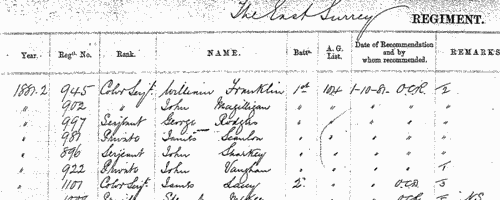 The East Surrey REGIMENT.
Year. Regtl. No. Rank. NAME. Battn. A. G. List. Date of Recommendation and by whom recommended. REMARKS
1881-2 945 Color Serjt. William Franklin 1st 104 1-10-81 O.C.R. 2
" 902 " John Magilligan " " " "
" 997 Serjeant George Rodgers " " " "
" 987 Private James Scanlon " " " "
" 896 Serjeant John Sharkey " " " "
" 922 Private John Vaughan " " " " 1
" 1101 Color Serjt. James Lacey 2 " " O.C.R. 3